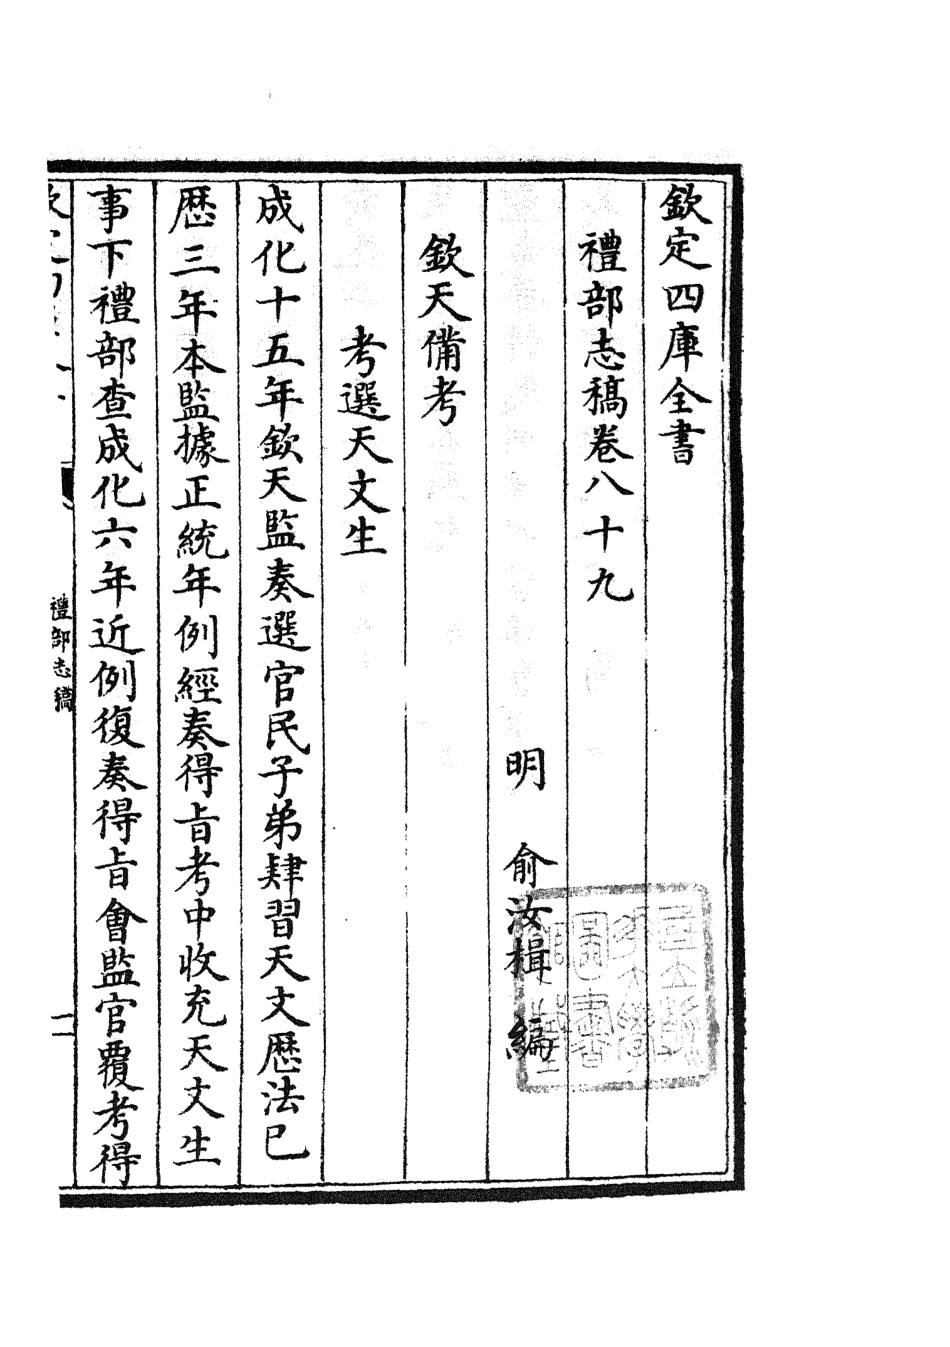 欽定四庫全書
禮部志稿卷八十九
明 俞汝楫 編
欽天備考
考選天文生
成化十五年欽天監奏選官民子弟肄習天文歷法已
歷三年本監據正統年例經奏得旨考中收充天文生
事下禮部查成化六年近例復奏得旨會監官覆考得
禮部志稿